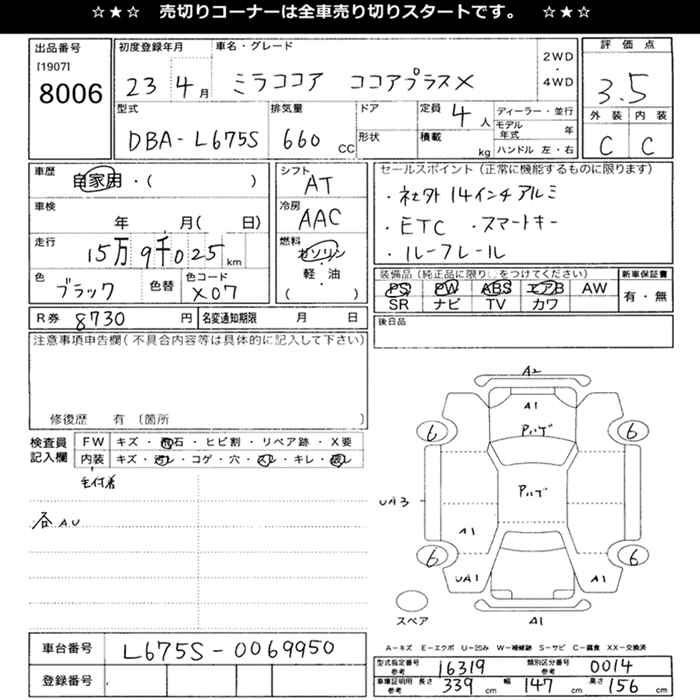 ☆★☆ 売切りコーナーは全車売り切りスタートです。 ☆★☆
出品番号
[1907]
8006
初度登録年月
23 4月
車名・グレード
ミラココア ココアプラスX
2WD
・
4WD
評価点
3.5
外装 内装
C C
型式
DBA-L675S
排気量
660 CC
ドア
形状
定員 4人
積載 kg
ディーラー・並行
モデル年式 年
ハンドル 左・右
車歴
自家用・( )
車検
年 月( 日)
走行
15万9千025 km
色
ブラック
色替
色コード
X07
シフト
AT
冷房
AAC
燃料
ガソリン
・
軽・油
( )
セールスポイント(正常に機能するものに限ります)
・社外14インチアルミ
・ETC ・スマートキー
・ルーフレール
装備品(純正品に限り○をつけてください)
PS PW ABS エアB AW
SR ナビ TV カワ
新車保証書
有・無
R券 8730円
名変通知期限 月 日
後日品
注意事項申告欄(不具合内容等は具体的に記入して下さい)
修復歴 有(箇所
検査員
記入欄
FW キズ・飛石・ヒビ割・リペア跡・X要
内装 キズ・汚レ・コゲ・穴・スレ・キレ・破レ
毛付着
各AU
A2
A1
アルゲ
6 6
アルゲ
UA3
A1
6 6
UA1 A1
スペア
A1
A-キズ E-エクボ U-凹み W-補修跡 S-サビ C-腐食 XX-交換済
車台番号 L675S-0069950
登録番号
型式指定番号
参考
16319
類別区分番号
参考
0014
車庫証明用
参考
長さ 339 cm 幅 147 cm 高さ 156 cm